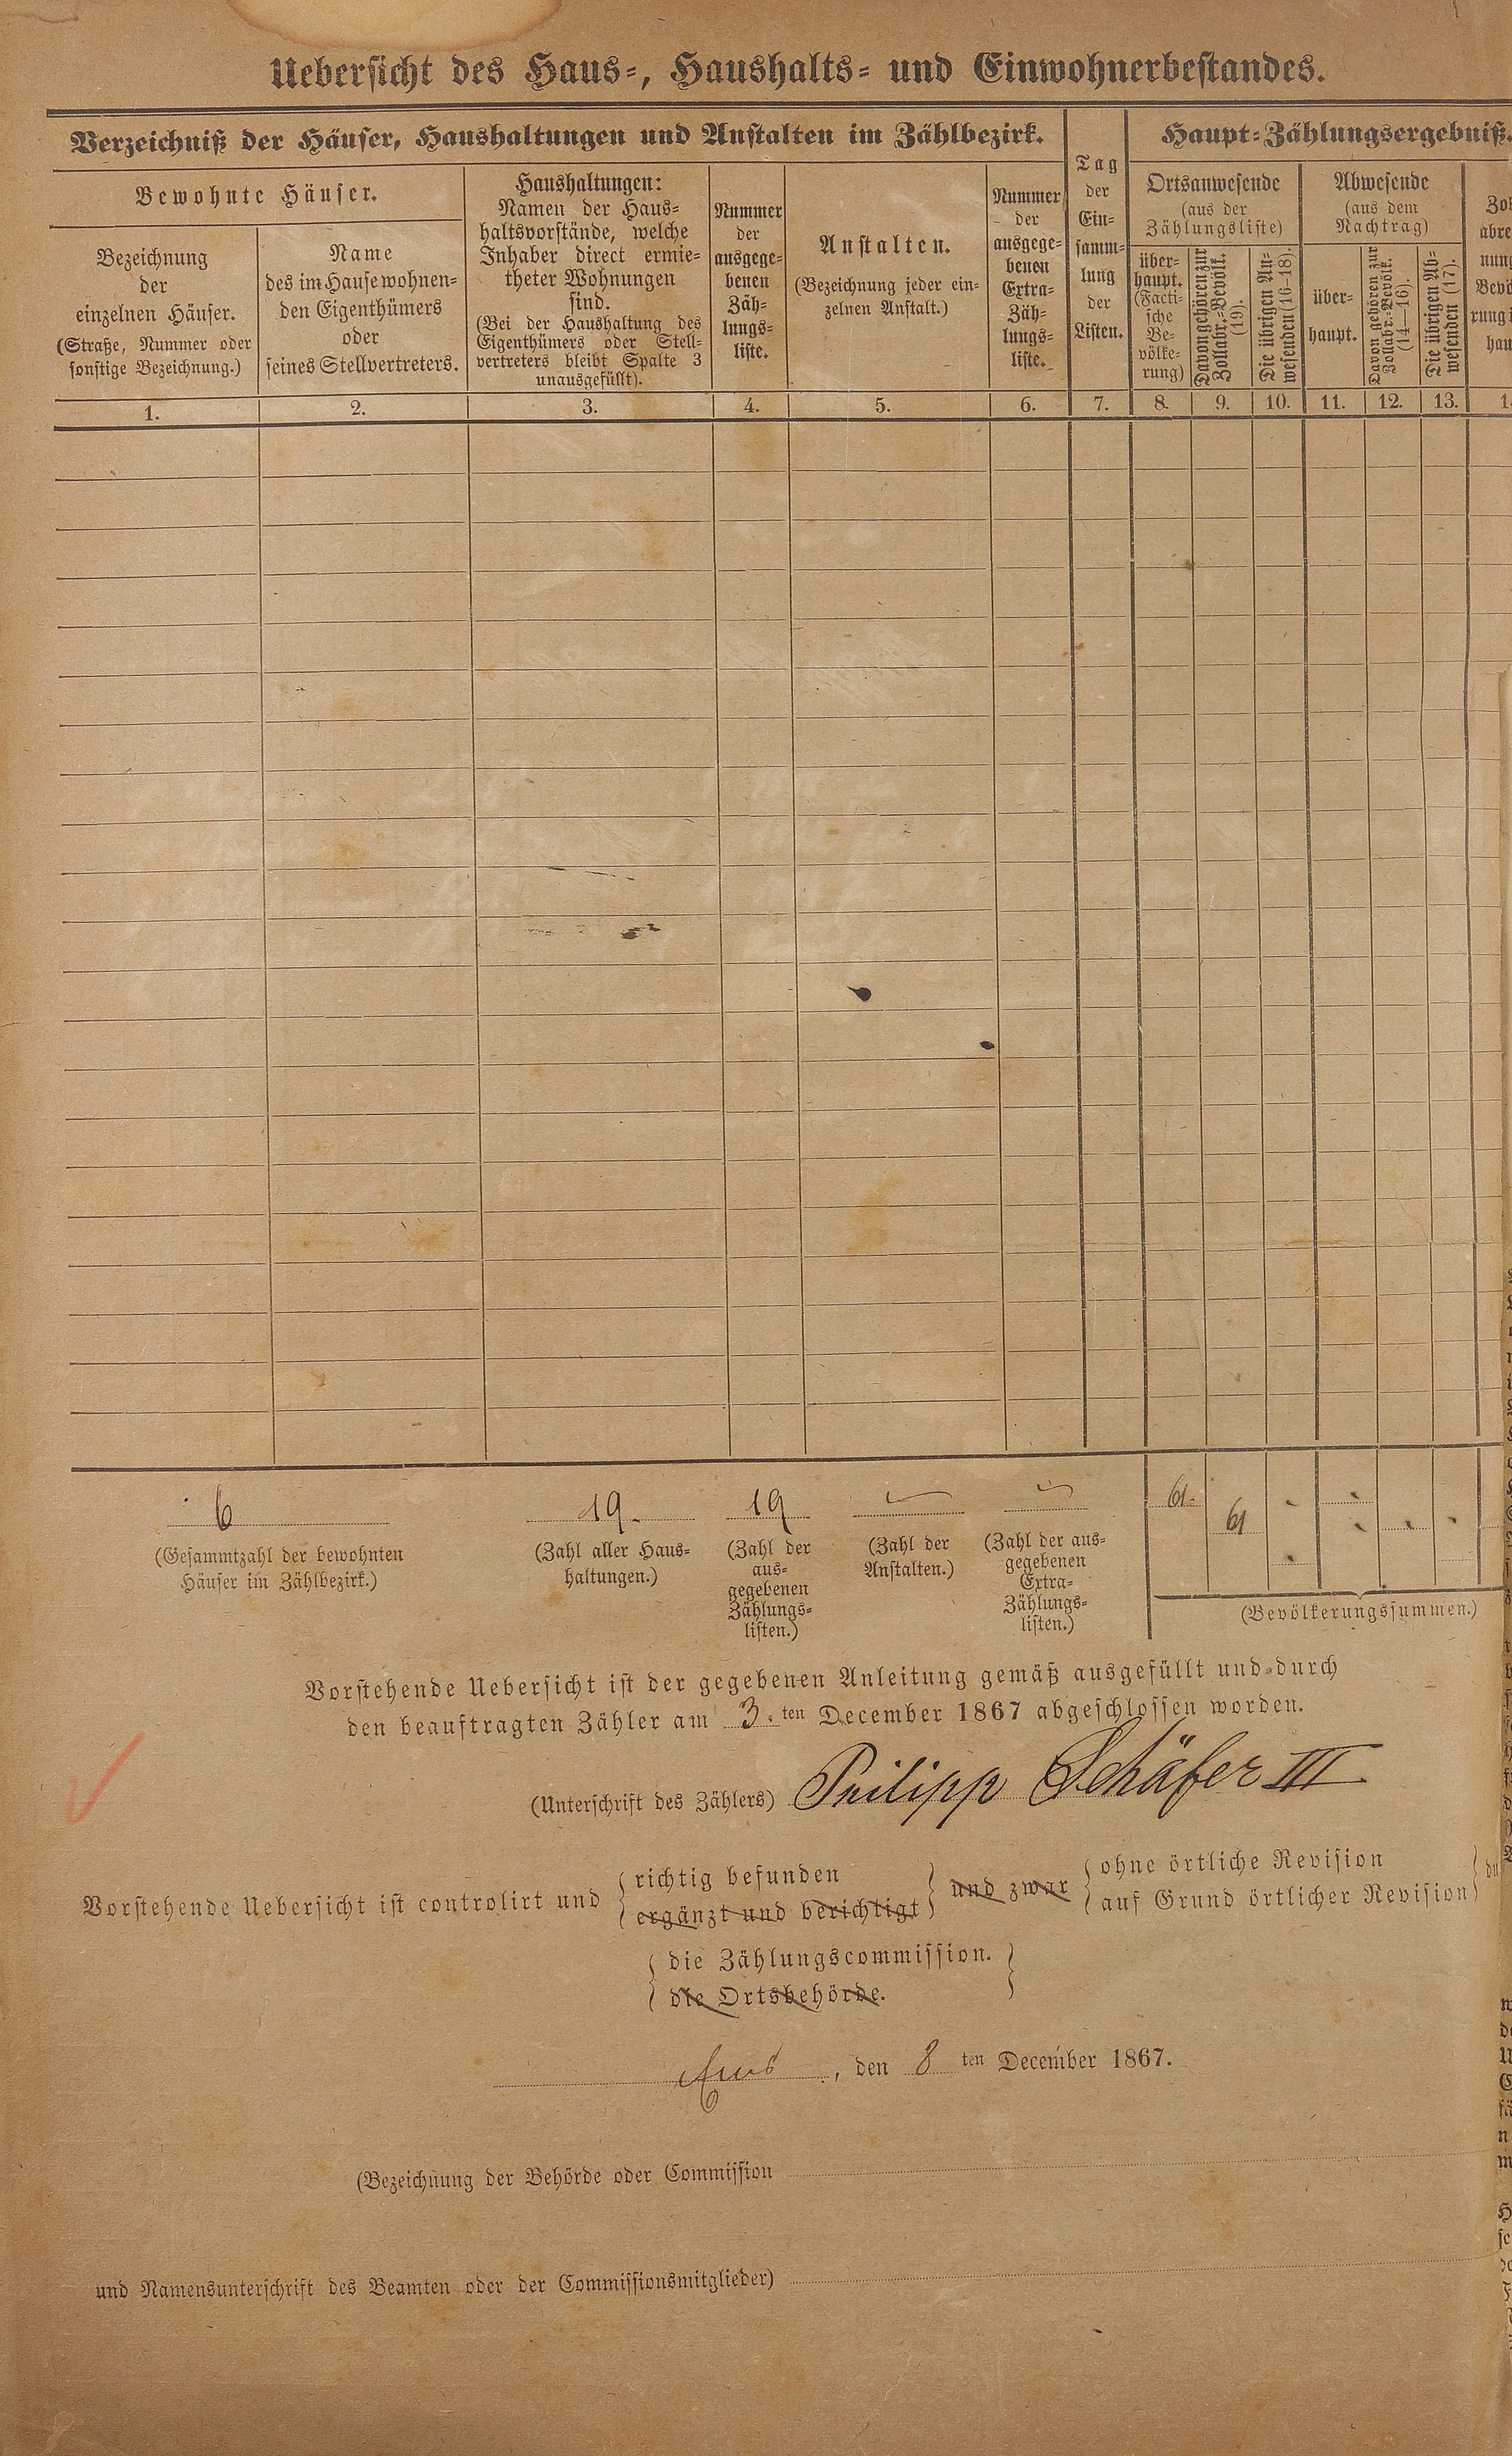 Uebersicht des Haus-, Haushalts- und Einwohnerbestandes.
Verzeichniß der Häuser, Haushaltungen und Anstalten im Zählbezirk.
Haupt-Zählungsergebniß.
Bewohnte Häuser.
Bezeichnung
der
einzelnen Häuser.
(Straße, Nummer oder
sonstige Bezeichnung.)
Name
des im Hause wohnen-
den Eigenthümers
oder
seines Stellvertreters.
Haushaltungen:
Namen der Haus-
haltsvorstände, welche
Inhaber direct ermie-
theter Wohnungen
sind.
(Bei der Haushaltung des
Eigenthümers oder Stell-
vertreters bleibt Spalte 3
unausgefüllt).
Nummer
der
ausgege-
benen
Zäh-
lungs-
liste.
Anstalten.
(Bezeichnung jeder ein-
zelnen Anstalt.)
Nummer
der
ausgege-
benen
Extra-
Zäh-
lungs-
liste.
Tag
der
Ein-
samm-
lung
der
Listen.
Ortsanwesende
(aus der
Zählungsliste)
über-
haupt.
(Facti-
sche
Be-
völke-
rung)
Davon gehören zur
Zollabr.-Bevölk.
(19).
Die übrigen An-
wesenden (16-18).
Abwesende
(aus dem
Nachtrag)
über-
haupt.
Davon gehören zur
Zollabr.-Bevölk.
(14—16).
Die übrigen Ab-
wesenden (17).
1.
2.
3.
4.
5.
6.
7.
8.
9.
10.
11.
12.
13.
6
19.
19
61.
61
(Gesammtzahl der bewohnten
Häuser im Zählbezirk.)
(Zahl aller Haus-
haltungen.)
(Zahl der
aus-
gegebenen
Zählungs-
listen.)
(Zahl der
Anstalten.)
(Zahl der aus-
gegebenen
Extra-
Zählungs-
listen.)
(Bevölkerungssummen.)
Vorstehende Uebersicht ist der gegebenen Anleitung gemäß ausgefüllt und durch
den beauftragten Zähler am 3. ten December 1867 abgeschlossen worden.
(Unterschrift des Zählers) Philipp Schäfer III
Vorstehende Uebersicht ist controlirt und
richtig befunden
ergänzt und berichtigt
und zwar
ohne örtliche Revision
auf Grund örtlicher Revision
die Zählungscommission.
die Ortsbehörde.
Ems, den 8 ten December 1867.
(Bezeichnung der Behörde oder Commission
und Namensunterschrift des Beamten oder der Commissionsmitglieder)